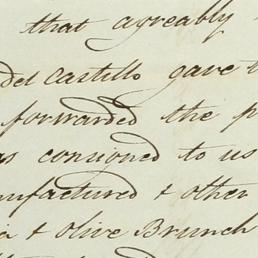 that agreably
del Castillo gave t
forwarded the p
as consigned to us
nufactured & other
a & olive Brunch